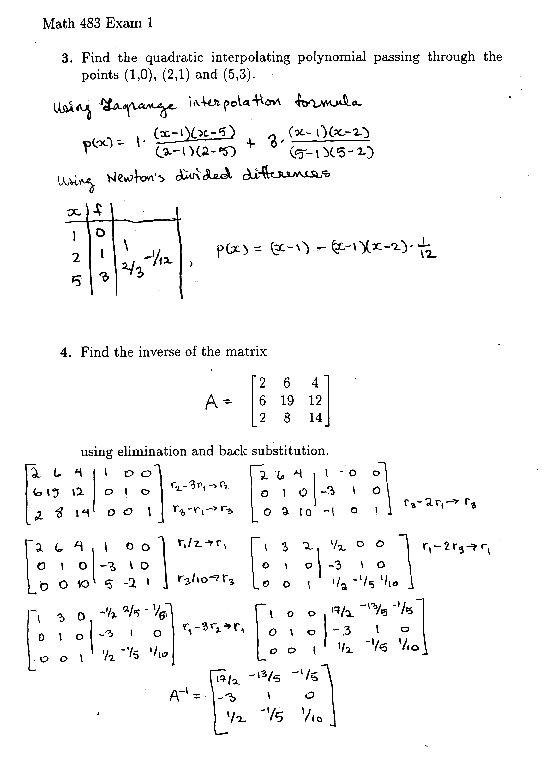 Math 483 Exam 1
3. Find the quadratic interpolating polynomial passing through the
points (1,0), (2,1) and (5,3).
Using Lagrange interpolation formula
p(x) = 1· (x-1)(x-5)/(2-1)(2-5) + 3· (x-1)(x-2)/(5-1)(5-2)
Using Newton's divided differences
x | f
1 | 0
2 | 1 | 1
5 | 3 | 2/3 -1/12 , p(x) = (x-1) - (x-1)(x-2)· 1/12
4. Find the inverse of the matrix
A = [2 6 4
6 19 12
2 8 14]
using elimination and back substitution.
[2 6 4 | 1 0 0
6 19 12 | 0 1 0
2 8 14 | 0 0 1]
r₂-3r₁→r₂
r₃-r₁→r₃
[2 6 4 | 1 0 0
0 1 0 | -3 1 0
0 2 10 | -1 0 1]
r₃-2r₁→r₃
[2 6 4 | 1 0 0
0 1 0 | -3 1 0
0 0 10 | 5 -2 1]
r₁/2→r₁
r₃/10→r₃
[1 3 2 | 1/2 0 0
0 1 0 | -3 1 0
0 0 1 | 1/2 -1/5 1/10]
r₁-2r₃→r₁
[1 3 0 | -1/2 2/5 -1/5
0 1 0 | -3 1 0
0 0 1 | 1/2 -1/5 1/10]
r₁-3r₂→r₁
[1 0 0 | 17/2 -13/5 -1/5
0 1 0 | -3 1 0
0 0 1 | 1/2 -1/5 1/10]
A⁻¹ = [17/2 -13/5 -1/5
-3 1 0
1/2 -1/5 1/10]